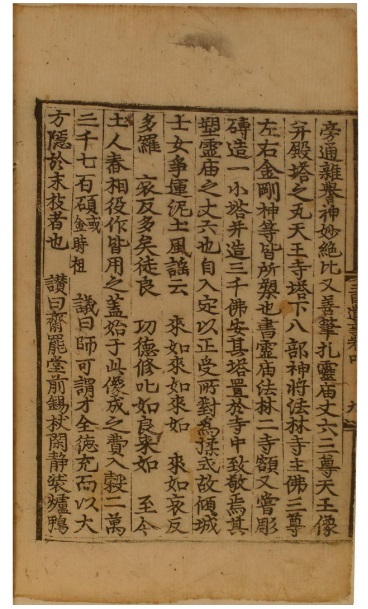 旁通雜譽神妙絶比又善筆扎靈庙丈六三尊天王像
并殿塔之瓦天王寺塔下八部神將法林寺主佛三尊
左右金剛神等皆所塑也書靈庙法林二寺額又嘗彫
磚造一小塔并造三千佛安其塔置於寺中致敬焉其
塑靈庙之丈六也自入定以正受所對為揉式故傾城
士女爭運泥土風謡云 來如來如來如 來如哀反
多羅 哀反多矣徒良 功德修叱如良來如 至今
土人舂相役作皆用之蓋始于此像成之費入穀二萬
三千七百碩或金時祖 議曰師可謂才全德充而以大
方隱於末枝者也 讃曰齋罷堂前錫杖閑静裝爐鴨